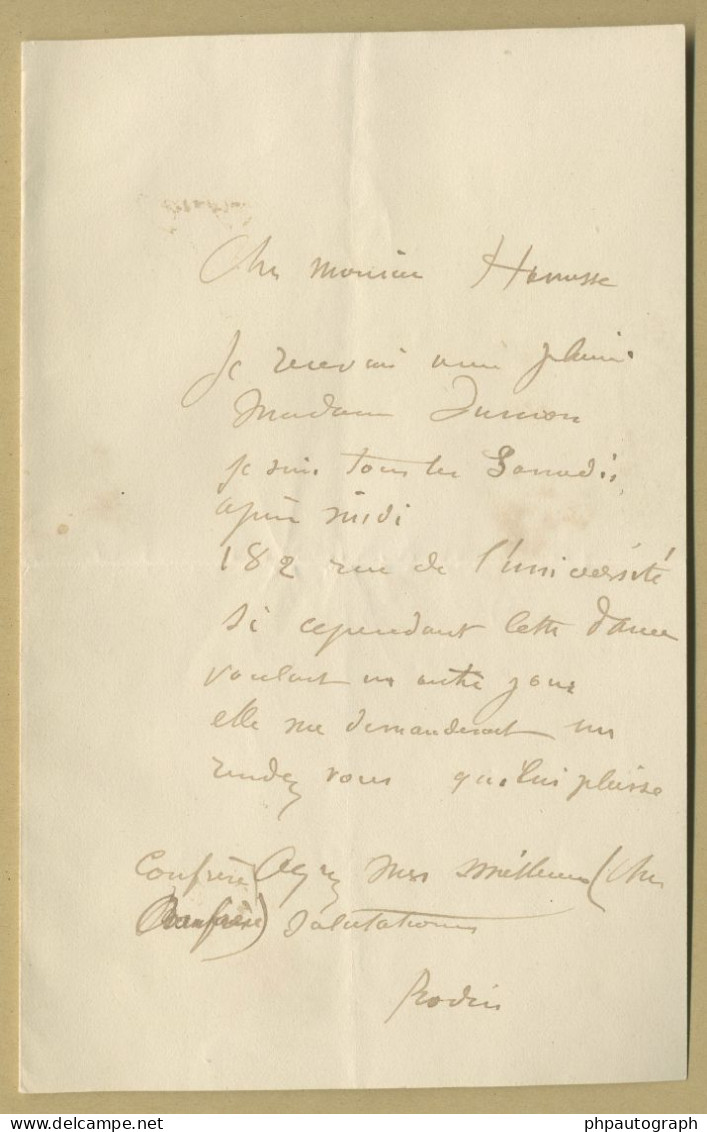 Cher monsieur
Je recevrai avec plaisir
Madame
je suis tous les Samedis
après midi
182 rue de l'Université
Si cependant cette dame
voulait un autre jour
elle me demanderait un
rendez vous qui lui plaise
Confrère) Agréez mes meilleures (cher
Confrère) salutations
Rodin
delcampe.net
phpautograph